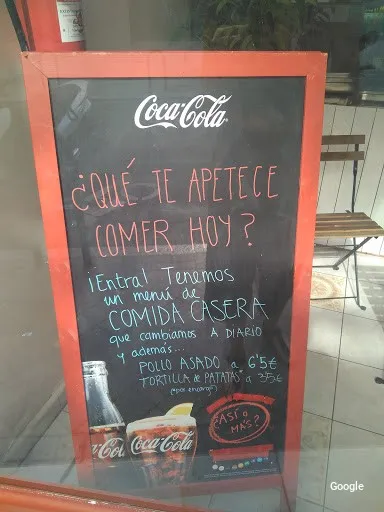 Coca-Cola
¿QUÉ TE APETECE
COMER HOY?
¡Entra! Tenemos
un menú de
COMIDA CASERA
que cambiamos A DIARIO
y además...
POLLO ASADO a 6'5€
TORTILLA de PATATAS* a 3'75€
(*por encargo)
¿ASÍ O
MÁS?
Coca-Cola
Google